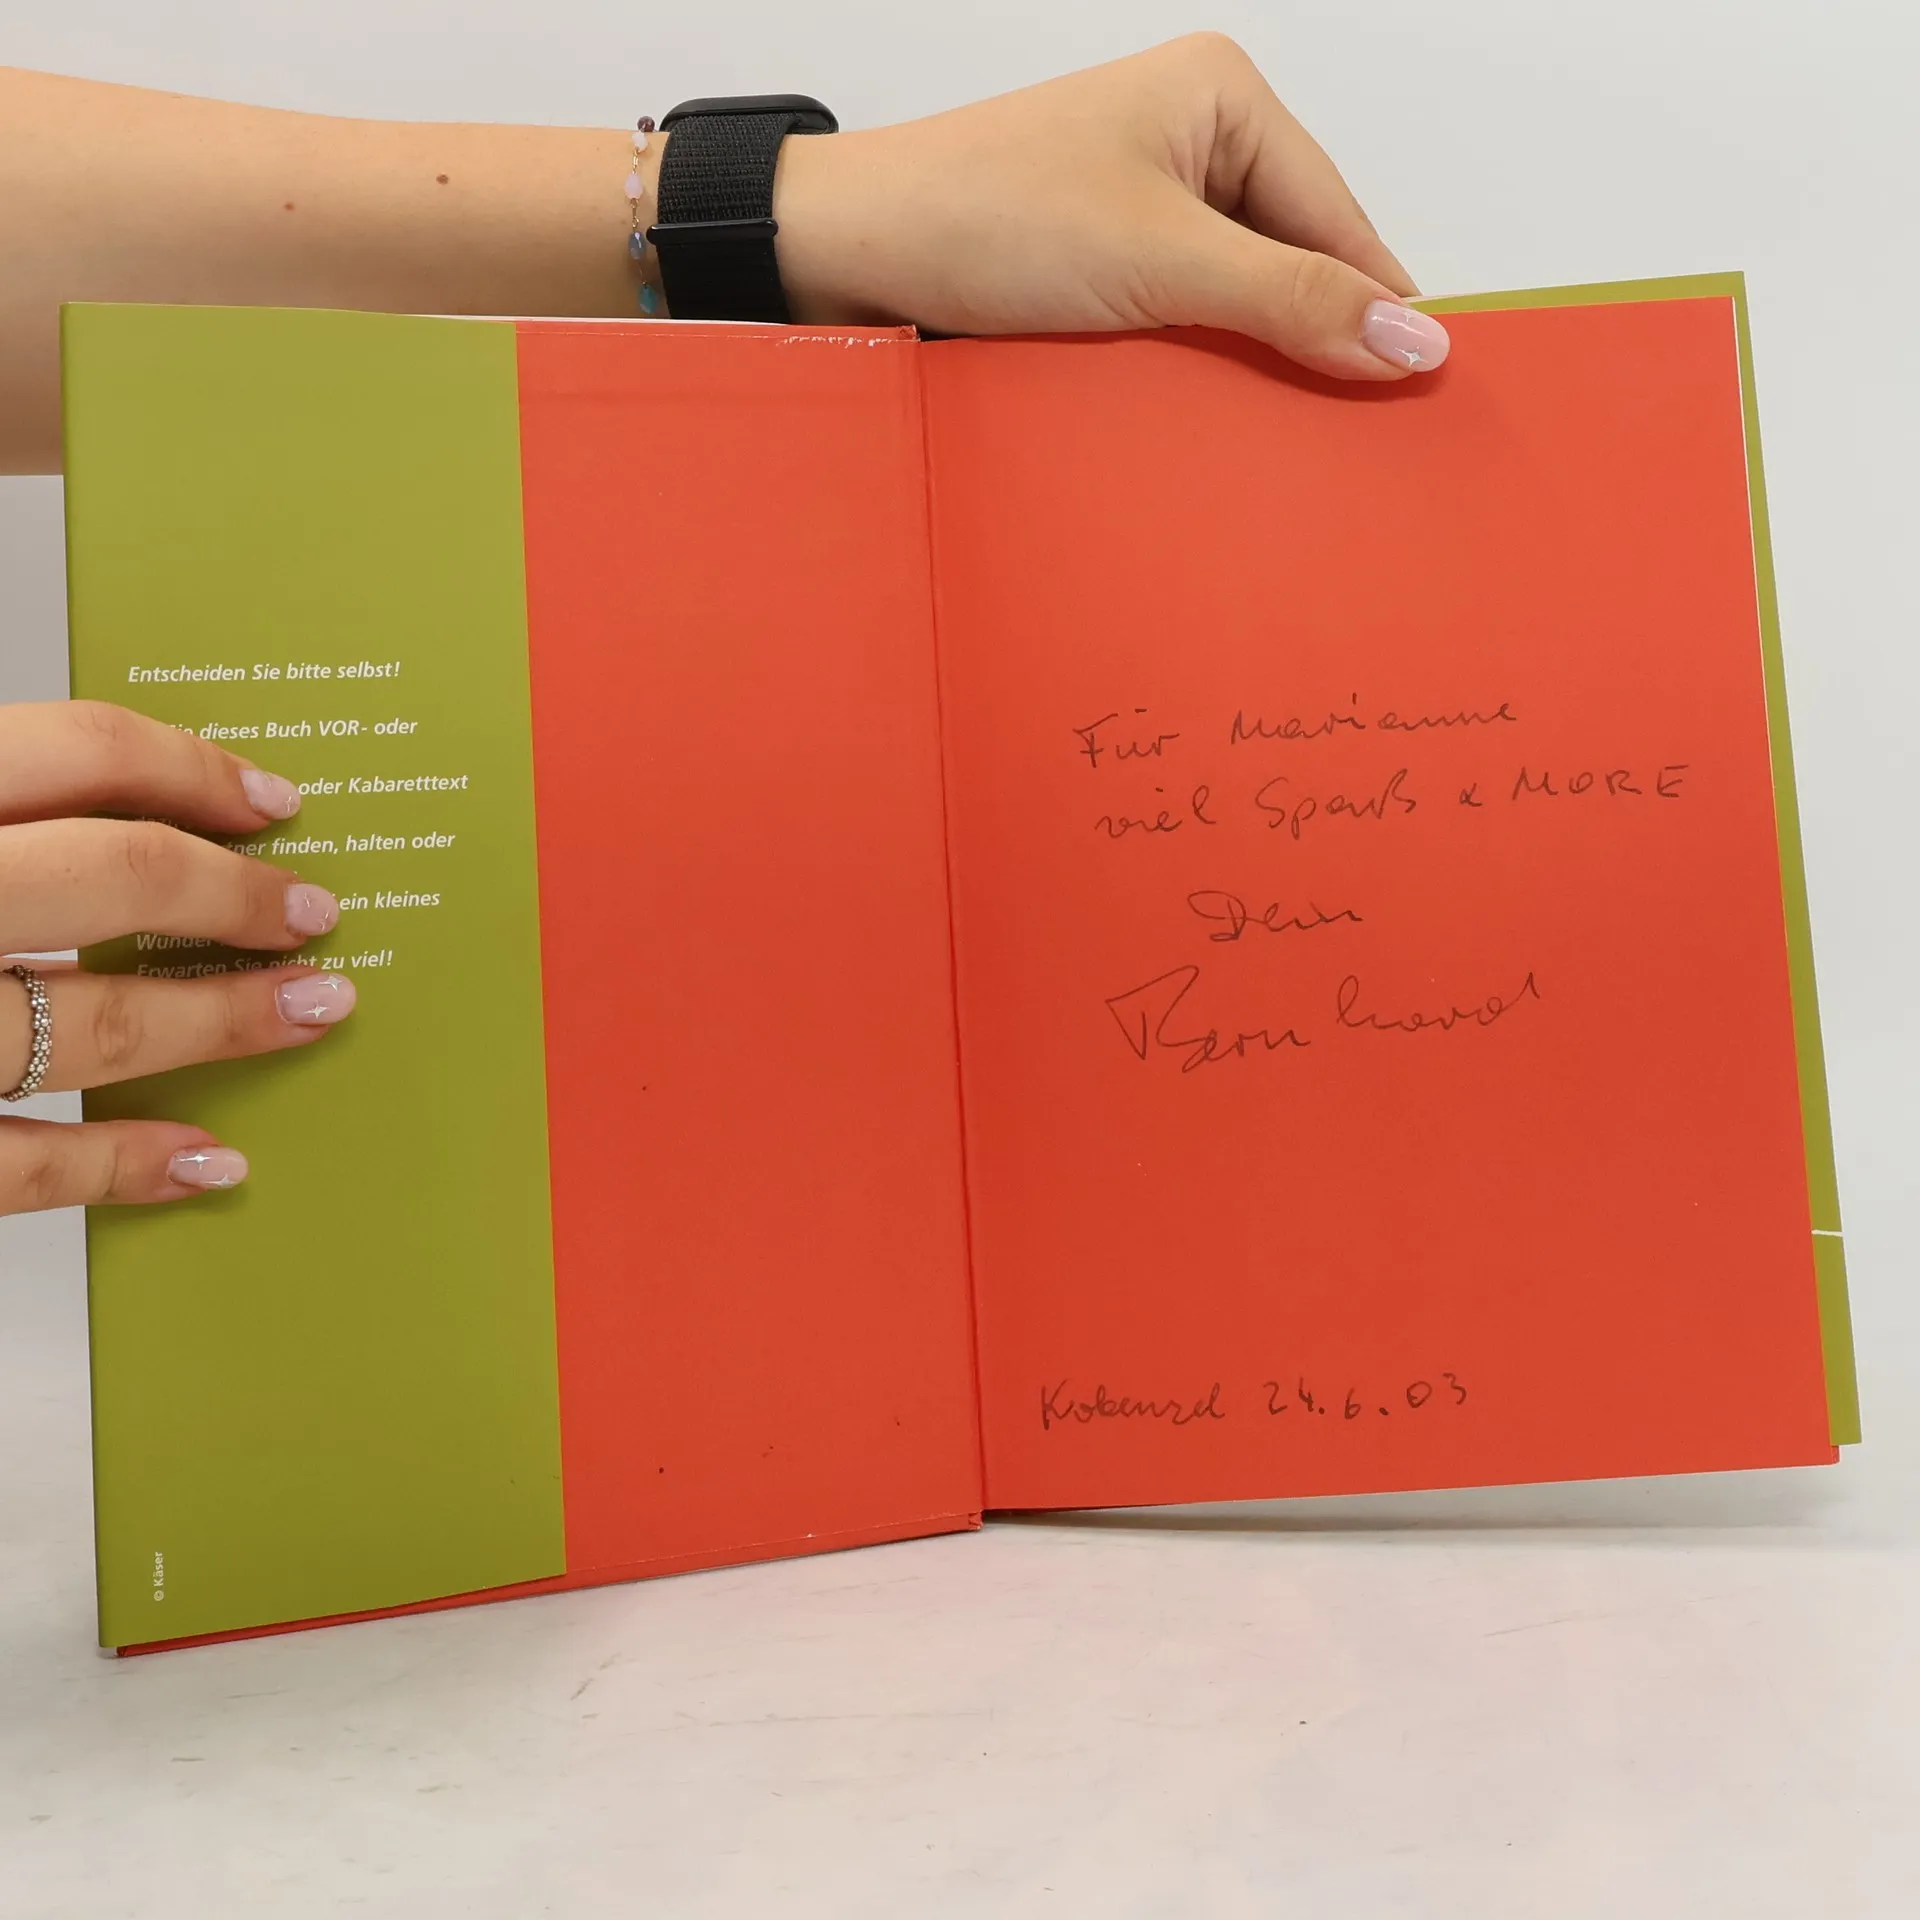 Entscheiden Sie bitte selbst!
Sie dieses Buch VOR- oder
oder Kabaretttext
finden, halten oder
ein kleines
Erwarten Sie nicht zu viel!
© Käser
Für Marianne
viel Spaß & MORE
Dein
Bernhard
Kobenzel 24.6.03